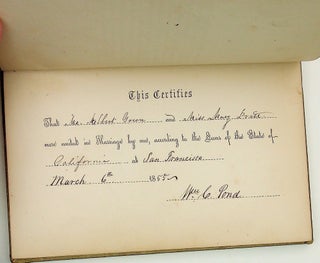 This Certifies
That Mr. Albert Green and Miss Mary
were united in Marriage by me, according to the Laws of the State of
California at San Francisco
March 6th 1855
Wm C. Pond